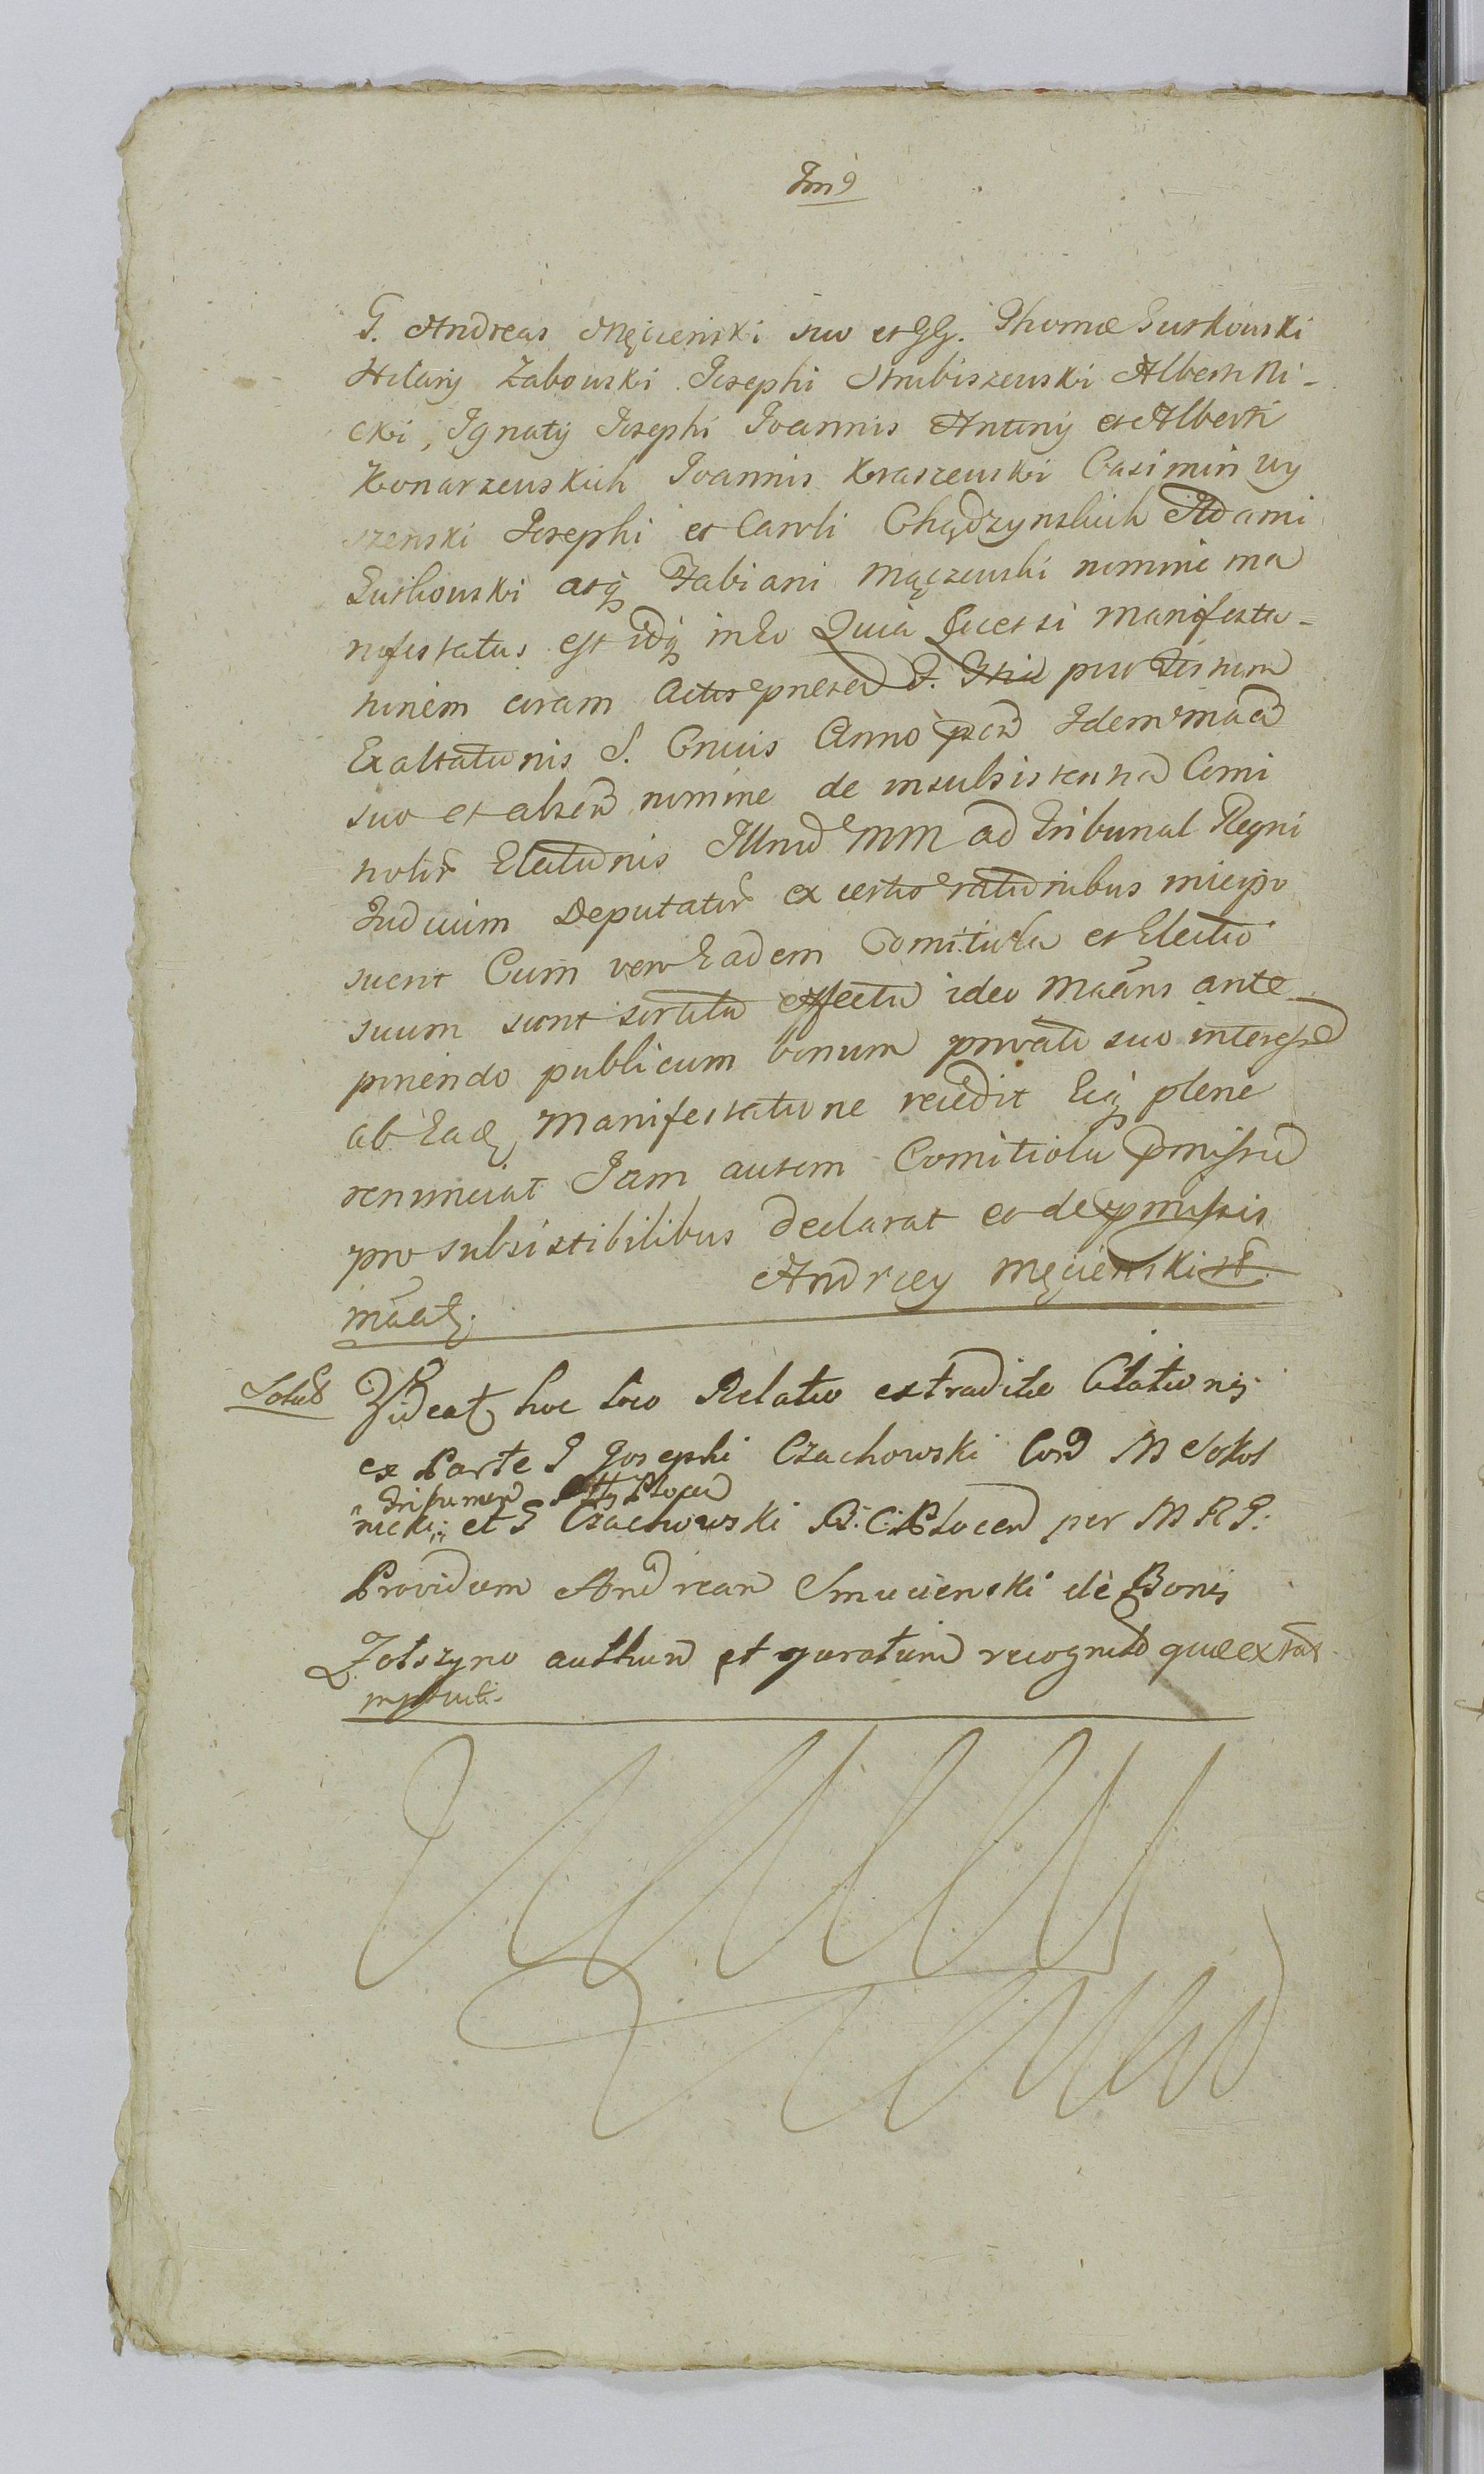 G. Andreas Męcienski suo et GG. Thomæ Gutkowski
Hilarij Zabowski Josephi Strubiszewski Alberti Ni-
cki, Ignatij Josephi Joannis Antonij et Alberti
Konarzewskich Joannis Kraszewski Casimiri Wy
szenski Josephi et Caroli Chądzynskich Adami
Gutkowski atq Fabiani Mączewski nomine ma
nifestatus est idq in Eo Quia licet si Manifesta-
tionem coram Actis præsen pro festum
Exaltationis S. Crucis Anno Idem
suo et absen nomine de insubsistentia Comi
tiolir Electionis Illrud MM ad Tribunal Regni
Judicium Deputator ex certis rationibus
suerit Cum vero Eadem Comitiola et Electio
suum sunt sortita effectu ideo Maans ante
ponendo publicum bonum privato suo interesse
ab Eadę Manifestatione recedit Eiq plene
renunciat Jam autem Comitiola pmissa
pro subsistibilibus declarat eo de pmissis
Andrzey Męcienski
maatę.
Videatę hoc loco Relatio extraditæ Citationis
ex Parte G Josephi Czachowski Con M Sokol
nicki et G Czachowski B. C. Plocen per M R G:
Providum Andream Smucienski de Bonis
Zolszyno authen et juratum recognito quæ extat